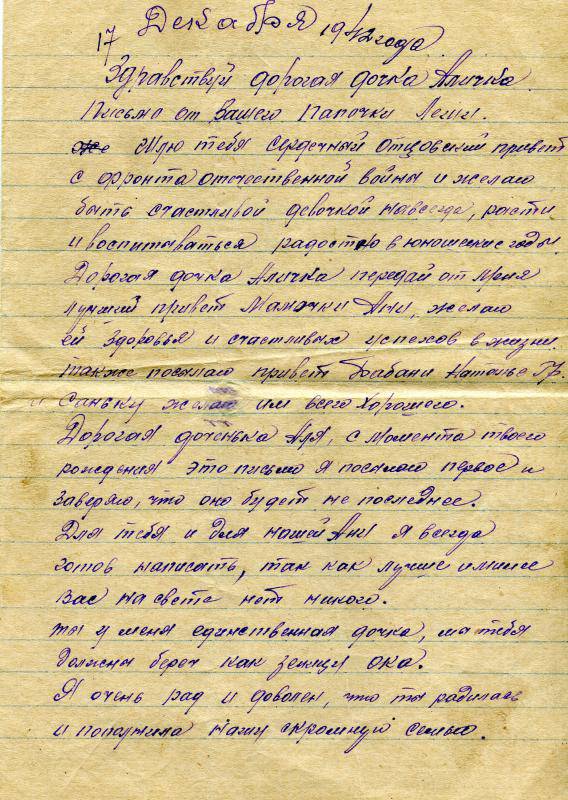 17 Декабря 1942 года
Здравствуй дорогая дочка Аличка
Письмо от вашего Папочки Леши.
Шлю тебя сердечный отцовский привет
с фронта отечественной войны и желаю
быть счастливой девочкой навсегда, расти
и воспитываться радостью в юношеские годы.
Дорогая дочка Аличка передай от меня
лучший привет Мамочки Ани, желаю
ей здоровья и счастливых успехов в жизни.
также посылаю привет Бабани Наталье Гр.
и Саньку желаю им всего хорошого.
Дорогая доченька Аля, с момента твоего
рождения это письмо я посылаю первое и
заверяю, что оно будет не последнее.
Для тебя и для нашей Ани я всегда
готов написать, так как лучше и милее
вас на свете нет никого.
ты у меня единственная дочка, ма тебя
должна береч как зеницу ока.
Я очень рад и доволен, что ты радилась
и пополнила нашу скромную семью.